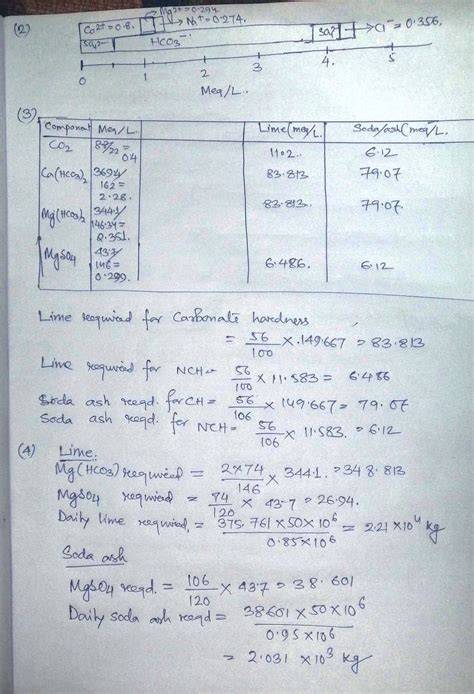 (2)
Mg2+ = 0.294
Ca2+ = 0.8. → Na+ = 0.274. → Cl- = 0.356.
SO42- HCO3- SO42-
0 1 2 3 4. 5
Meq/L..
(3)
Component Meq/L. Lime (meq/L. Soda/ash (meq/L)
CO2 88/22 = 0.4 1102.. 6.12
Ca(HCO3)2 3694/162 = 2.28. 83.813 79.07
Mg(HCO3)2 344.1/146.34 = 2.351. 83.813. 79.07.
MgSO4 43.7/146 = 0.299. 6.486. 6.12
Lime required for Carbonate hardness
= 56/100 × .149.667 = 83.813
Lime required for NCH = 56/100 × 11.583 = 6.486
Soda ash reqd. for CH = 56/106 × 149.667 = 79.07
Soda ash reqd. for NCH = 56/106 × 11.583. = 6.12
(4) Lime:.
Mg(HCO3) required = 2×74/146 × 344.1. = 348.813
MgSO4 required = 74/120 × 43.7 = 26.94.
Daily lime required = 375.761 × 50 × 10^6/0.85 × 10^6 = 2.21 × 10^4 kg
Soda ash
MgSO4 reqd. = 106/120 × 43.7 = 38.601
Daily soda ash reqd = 38.601 × 50 × 10^6/0.95 × 10^6
= 2.031 × 10^3 kg